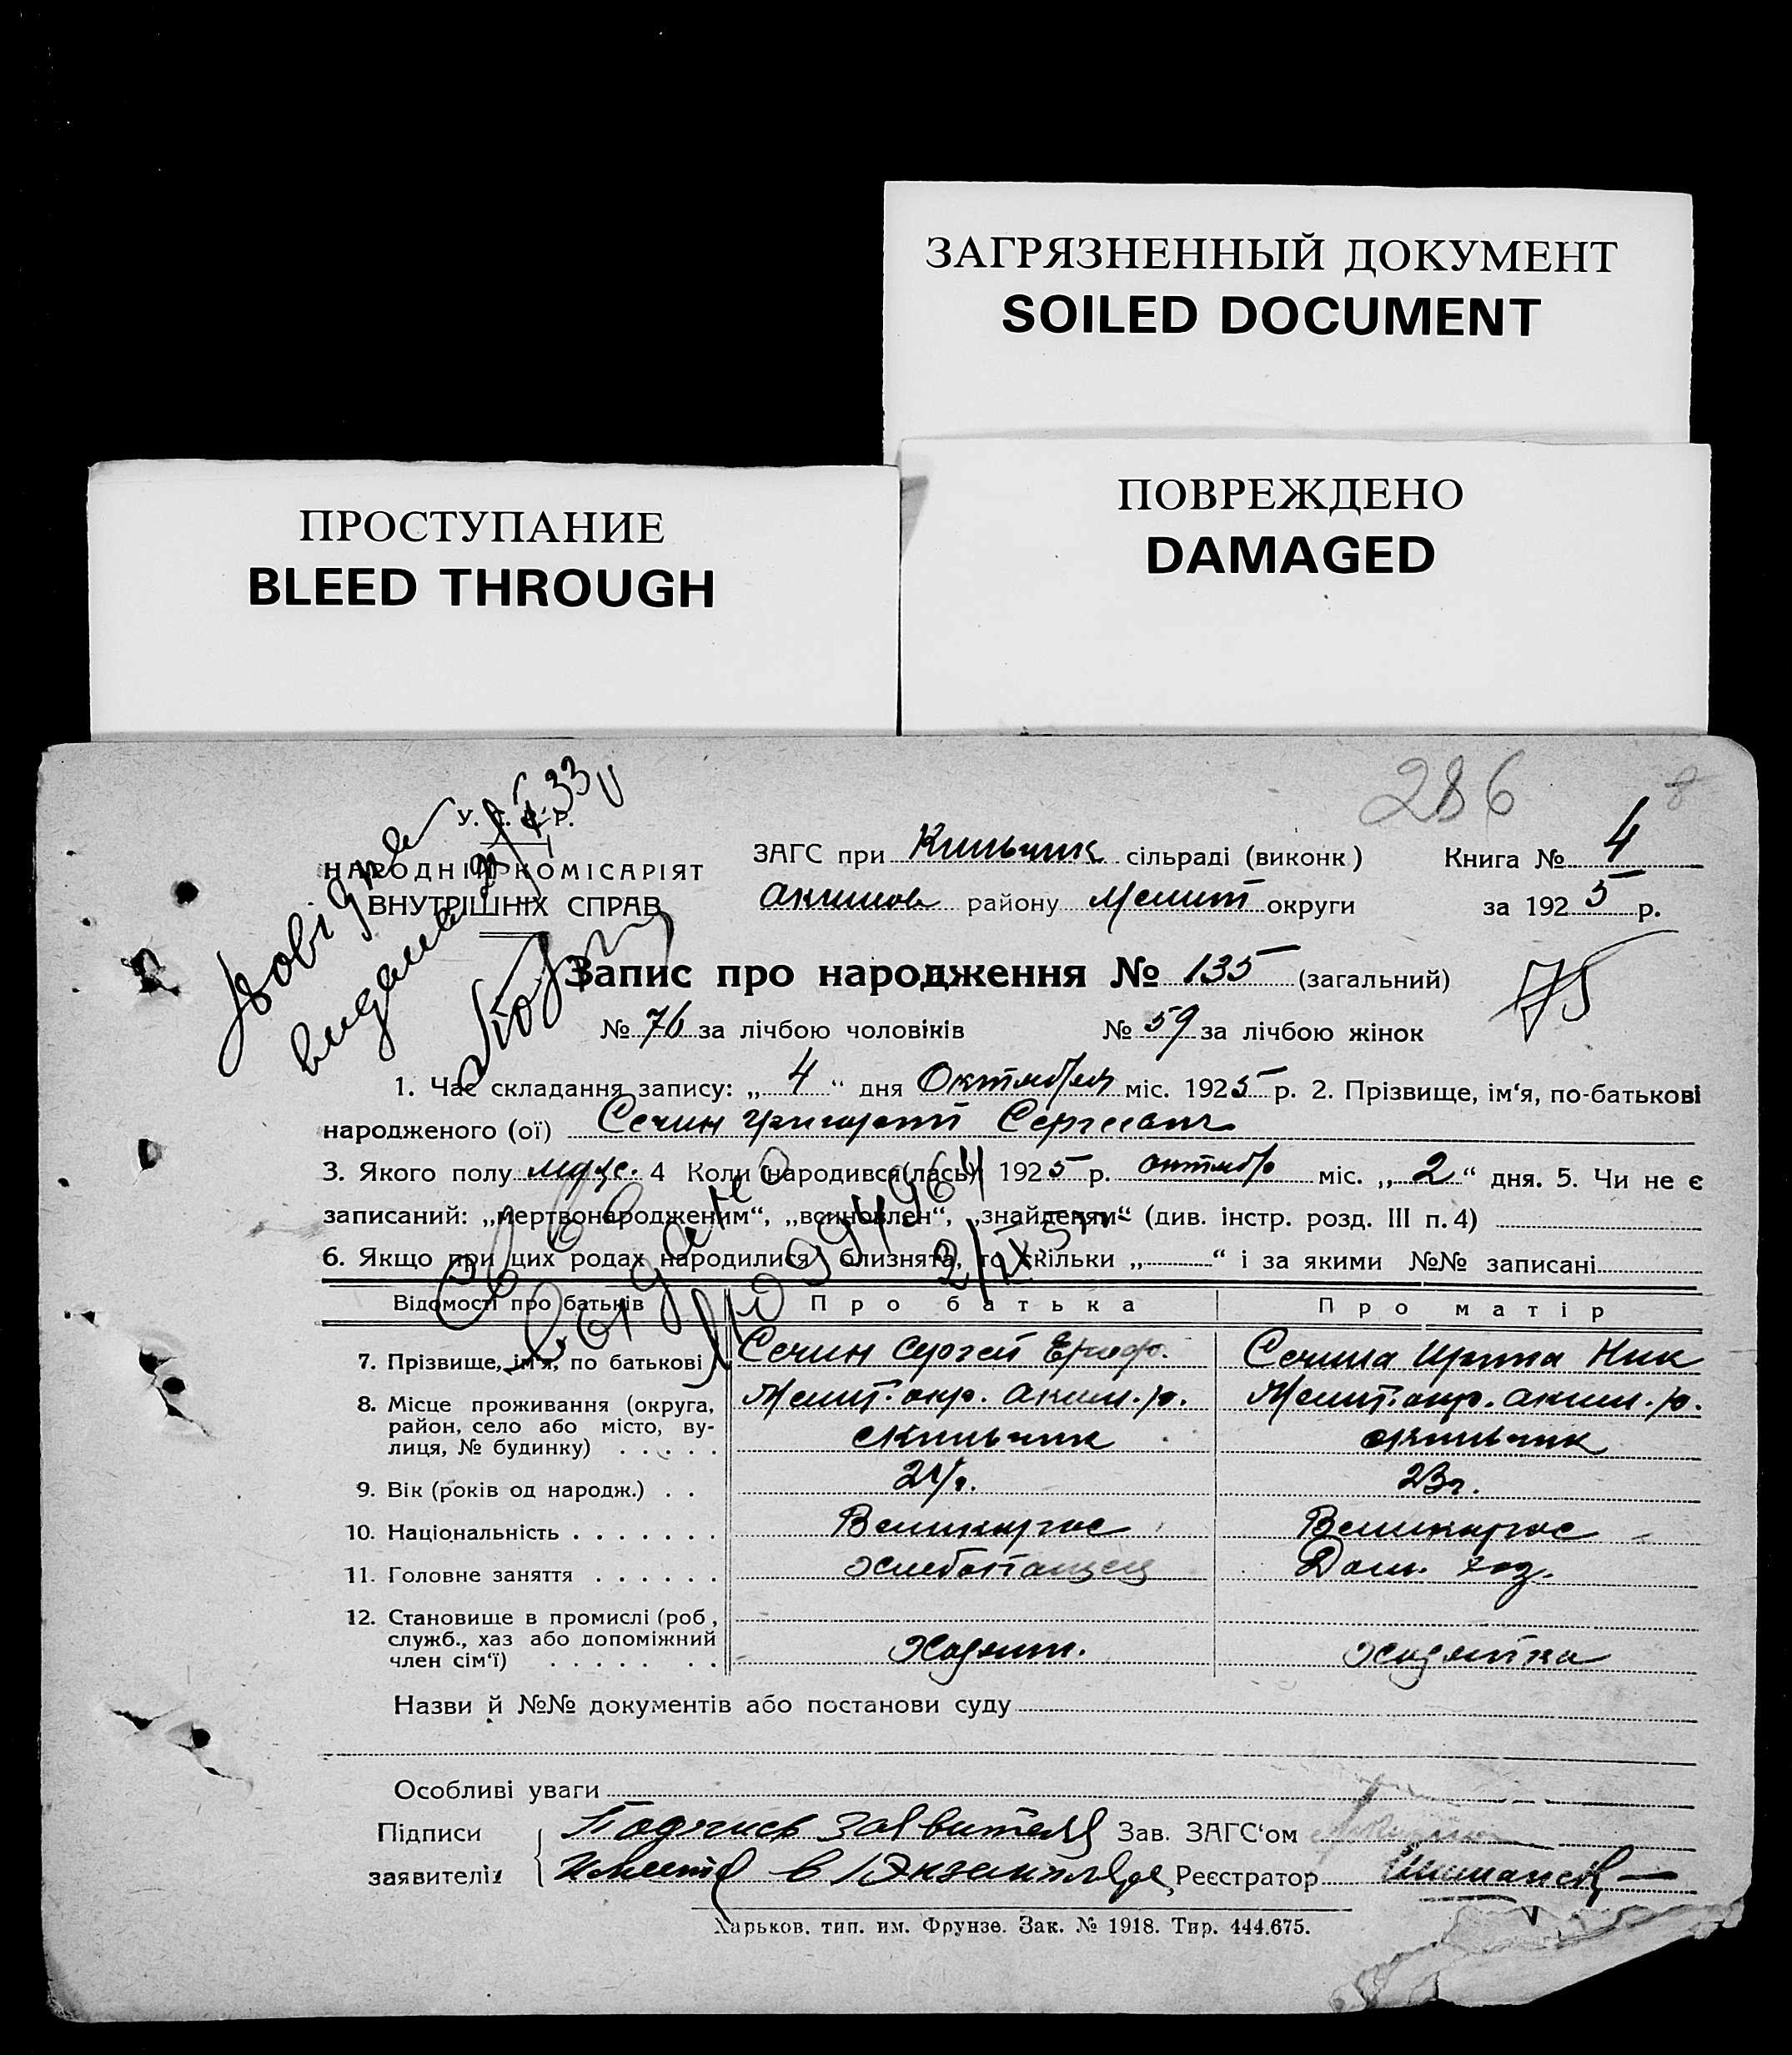 ЗАГРЯЗНЕННЫЙ ДОКУМЕНТ
SOILED DOCUMENT
ПРОСТУПАНИЕ
BLEED THROUGH
ПОВРЕЖДЕНО
DAMAGED
286
8
У. С. Р. Р.
НАРОДНІЙ КОМІСАРІЯТ
ВНУТРІШНІХ СПРАВ
33
ЗАГС при Кильчик сільраді (виконк) Книга № 4
Акимов району Мелит округи за 1925 р.
Запис про народження № 135 (загальний)
75
№ 76 за лічбою чоловіків № 59 за лічбою жінок
1. Час складання запису: „ 4 “ дня Октября міс. 1925 р. 2. Прізвище, ім‘я, по-батькові
народженого (ої) Сечин Григорий Сергеевич
3. Якого полу муж. 4 Коли народився(лась) 1925 р. октябр міс. „ 2 “ дня. 5. Чи не є
записаний: „мертвонародженим“, „всиновлен“, „знайденям“ (див. інстр. розд. III п. 4)
6. Якщо при цих родах народилися близнята, то скільки „ “ і за якими №№ записані
Відомості про батьків Про батька Про матір
7. Прізвище, ім‘я, по батькові Сечин Сергей Сечина Ирина Ник
8. Місце проживання (округа, Мелит. окр. Аким. р. Мелит. окр. Аким. р.
район, село або місто, ву-
лиця, № будинку) Кильчик Кильчик
9. Вік (років од народж.) 24г. 23г.
10. Національність Великорос Великорос
11. Головне заняття хлебопашец Дом. хоз.
12. Становище в промислі (роб,
служб., хаз або допоміжний
член сім‘ї) Хозяин. Хозяйка
Назви й №№ документів або постанови суду
Особливі уваги
Підписи Подпись заявителя Зав. ЗАГС‘ом
заявителів имеется в 1 Экземпляре, Реєстратор
Харьков, тип. им. Фрунзе. Зак. № 1918. Тир. 444.675.